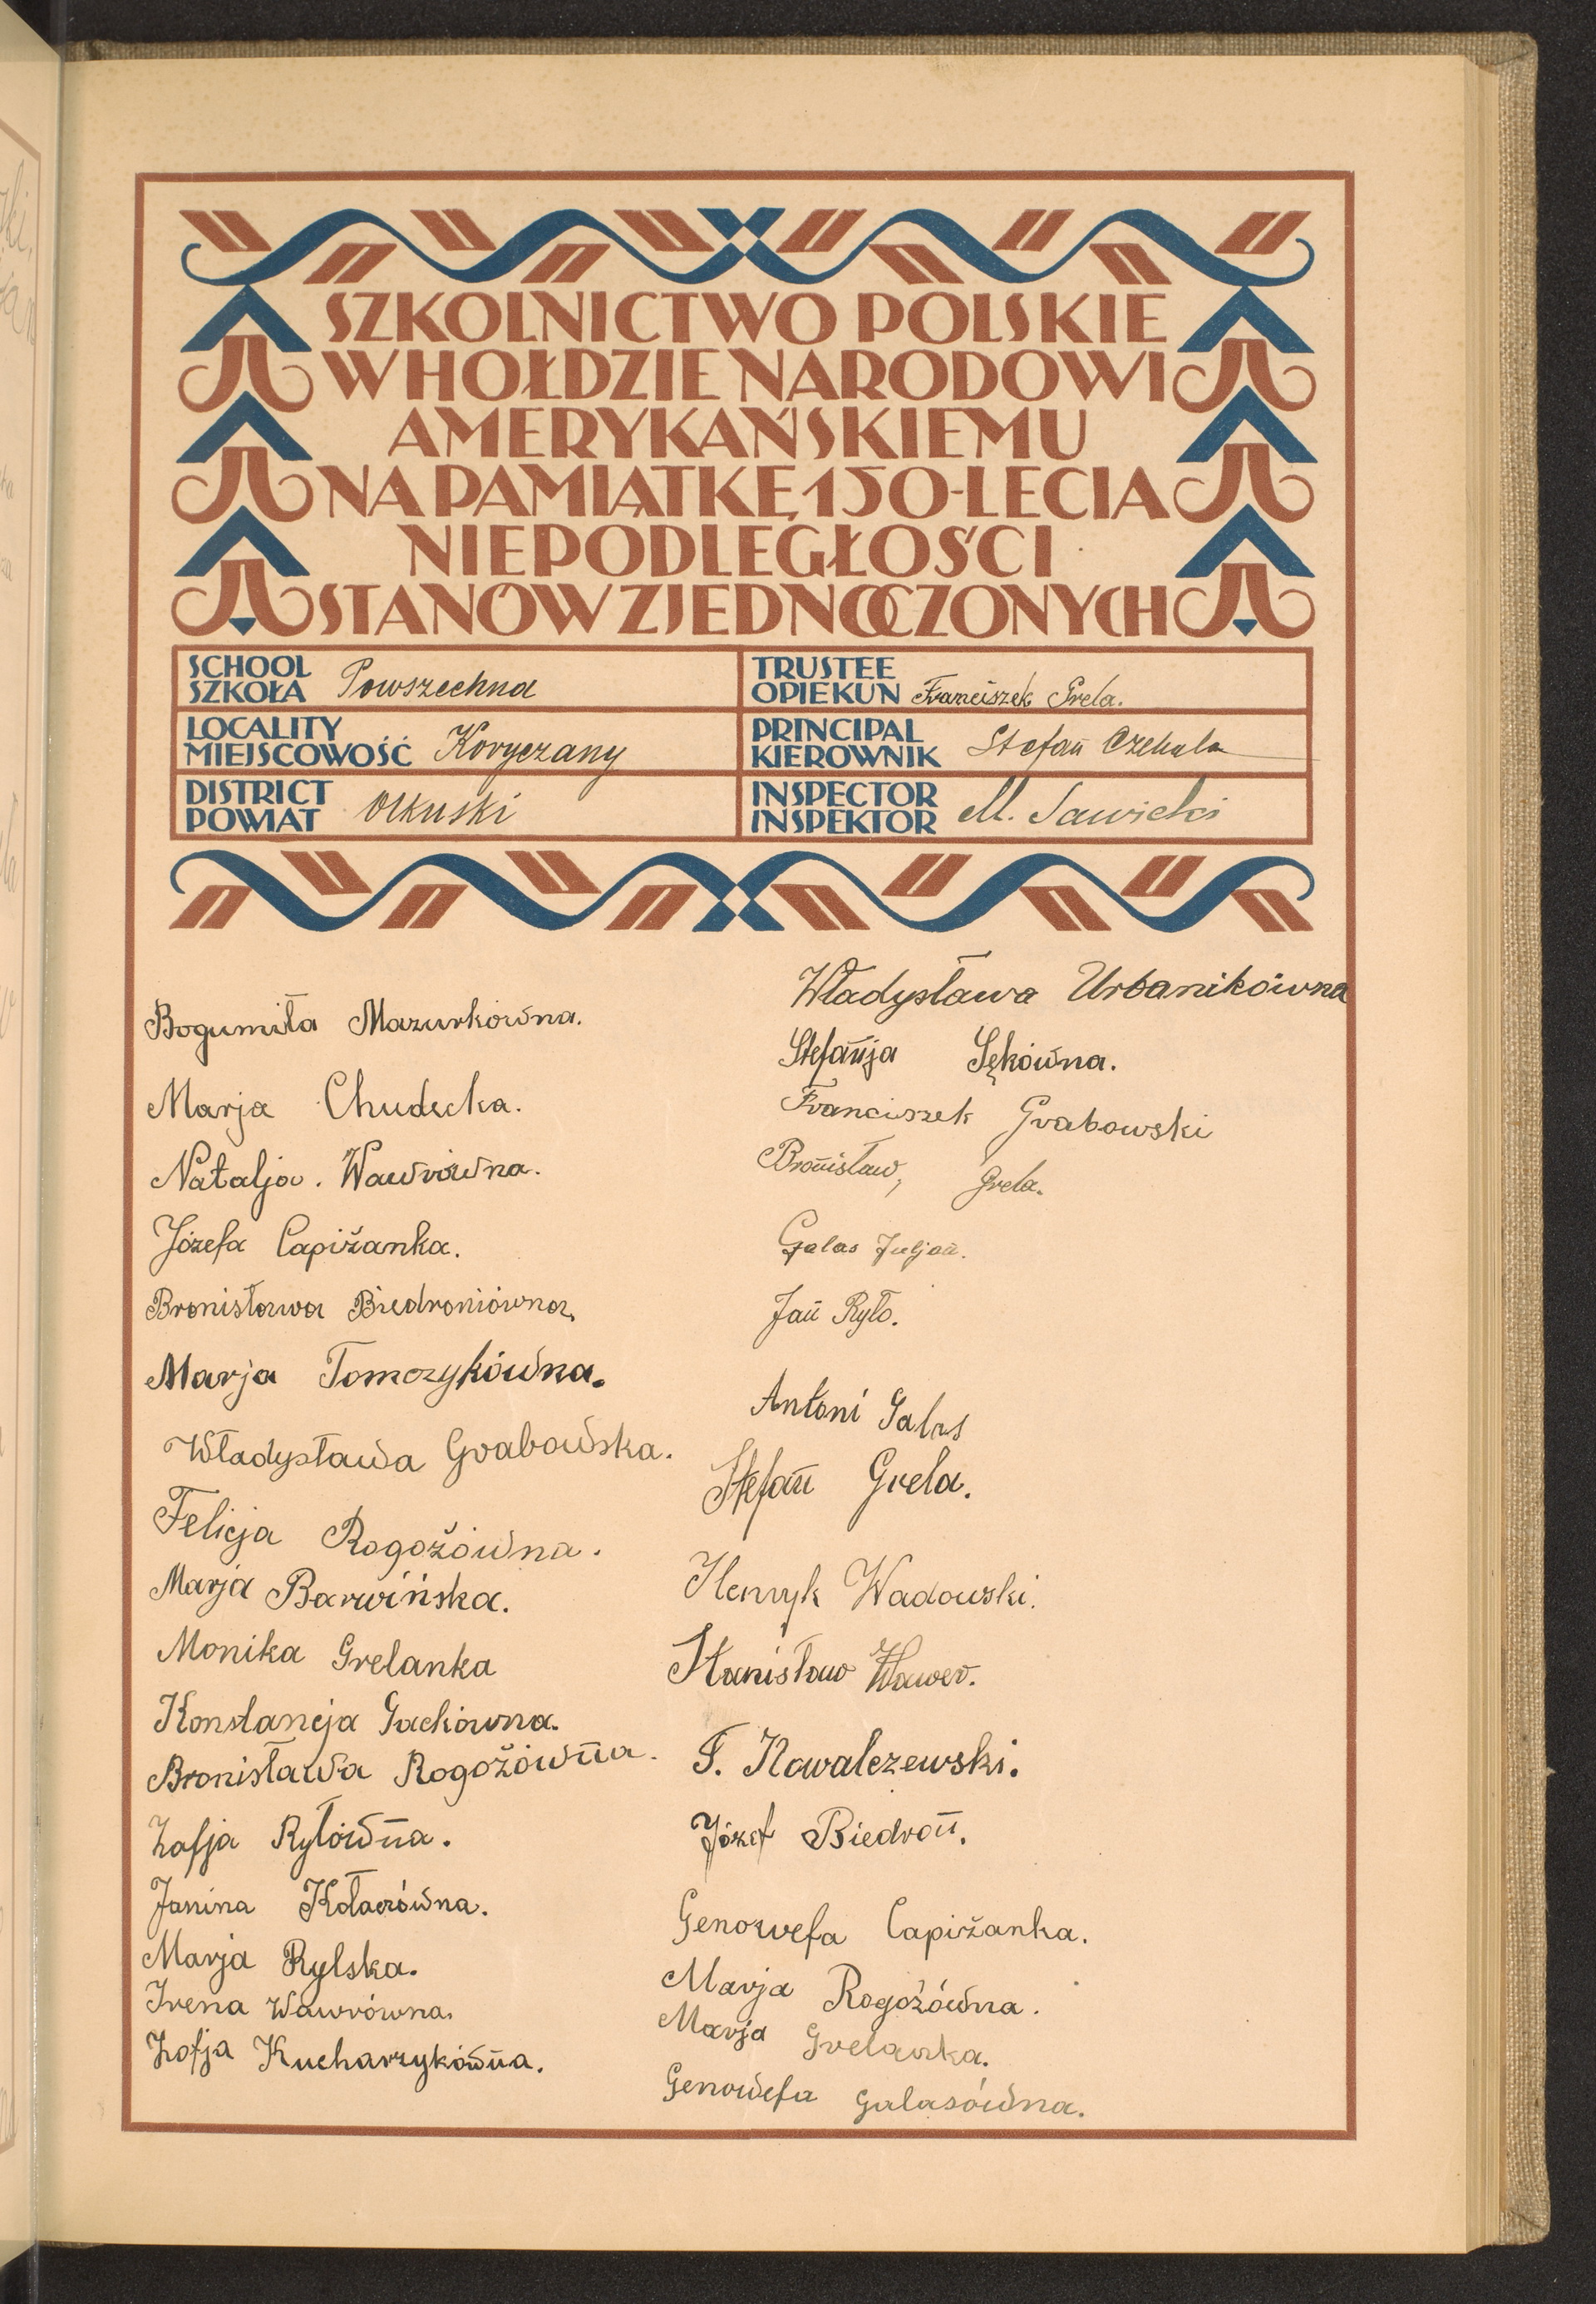 SZKOLNICTWO POLSKIE
W HOŁDZIE NARODOWI
AMERYKAŃSKIEMU
NA PAMIĄTKĘ 150-LECIA
NIEPODLEGŁOŚCI
STANÓW ZJEDNOCZONYCH
SCHOOL
SZKOŁA Powszechna
LOCALITY
MIEJSCOWOŚĆ Koryczany
DISTRICT
POWIAT Olkuski
TRUSTEE
OPIEKUN Franciszek Grela.
PRINCIPAL
KIEROWNIK Stefan Czekala
INSPECTOR
INSPEKTOR M. Sawicki
Bogumiła Mazurkówna.
Marja Chudecka.
Natalja. Wawrówna.
Józefa Capiżanka.
Bronisława Biedroniówna.
Marja Tomczykówna.
Władysława Grabowska.
Felicja Rogożówna.
Marja Barwińska.
Monika Grelanka
Konstancja Gackówna.
Bronisława Rogożówna.
Zofja Ryłówna.
Janina Kołaczówna.
Marja Rylska.
Irena Wawrówna.
Zofja Kucharzykówna.
Władysława Urbanikówna
Stefanja Sękówna.
Franciszek Grabowski
Bronisław, Grela.
Galas Juljan.
Jan Ryło.
Antoni Galas
Stefan Grela.
Henryk Wadowski.
Stanisław Wawer.
F. Kowalczewski.
Józef Biedroń.
Genowefa Capiżanka.
Marja Rogożówna.
Marja Grelanka.
Genowefa Galasówna.